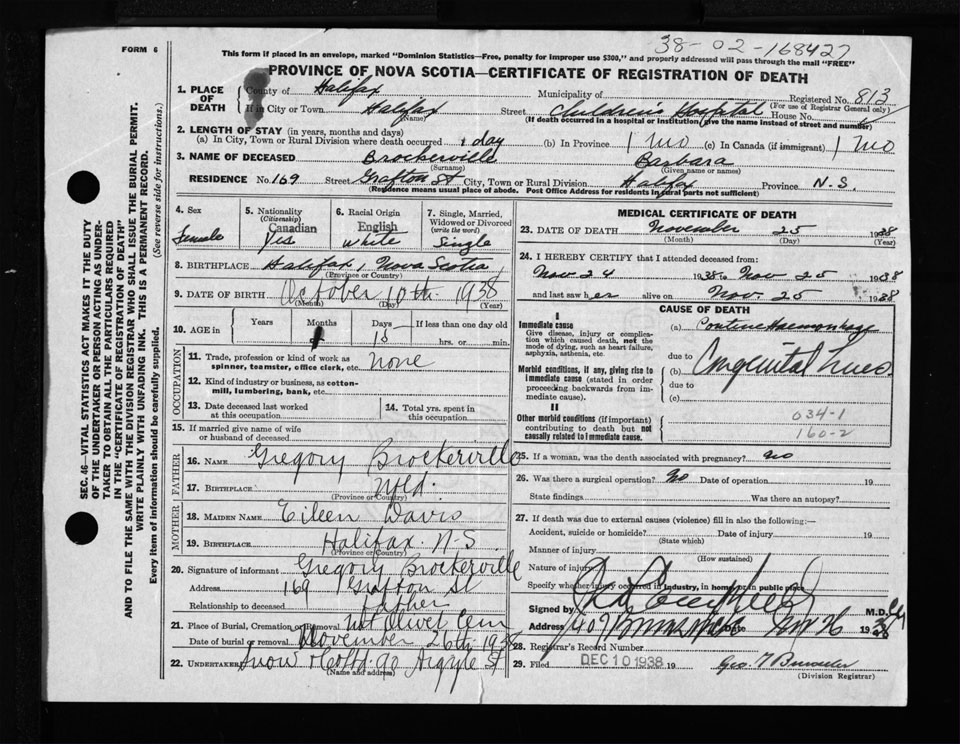 38-02-168427
FORM 6
This form if placed in an envelope, marked "Dominion Statistics—Free, penalty for improper use $300," and properly addressed will pass through the mail "FREE"
PROVINCE OF NOVA SCOTIA—CERTIFICATE OF REGISTRATION OF DEATH
1. PLACE OF DEATH County of Halifax Municipality of Registered No. 813
(For use of Registrar General only)
If in City or Town Halifax Street Children's Hospital House No.
(Name) (If death occurred in a hospital or institution, give the name instead of street and number)
2. LENGTH OF STAY (in years, months and days)
(a) In City, Town or Rural Division where death occurred 1 day (b) In Province 1 mo (c) In Canada (if immigrant) 1 mo
3. NAME OF DECEASED Brockerville Barbara
(Surname) (Given name or names)
RESIDENCE No. 169 Street Grafton St City, Town or Rural Division Halifax Province N.S.
(Residence means usual place of abode. Post Office Address for residents in rural parts not sufficient)
4. Sex Female
5. Nationality (Citizenship) Canadian Yes
6. Racial Origin English White
7. Single, Married, Widowed or Divorced (write the word) Single
8. BIRTHPLACE Halifax, Nova Scotia
(Province or Country)
9. DATE OF BIRTH October 10th 1938
(Month) (Day) (Year)
10. AGE in Years Months 1 Days 15 If less than one day old
hrs. or min.
OCCUPATION
11. Trade, profession or kind of work as spinner, teamster, office clerk, etc. None
12. Kind of industry or business, as cotton-mill, lumbering, bank, etc.
13. Date deceased last worked at this occupation
14. Total yrs. spent in this occupation
15. If married give name of wife or husband of deceased
FATHER
16. NAME Gregory Brockerville
17. BIRTHPLACE Nfld.
(Province or Country)
MOTHER
18. MAIDEN NAME Eileen Davis
19. BIRTHPLACE Halifax N-S.
(Province or Country)
20. Signature of informant Gregory Brockerville
Address 169 Grafton St
Relationship to deceased Father
21. Place of Burial, Cremation or Removal Mt Olivet Cem
Date of burial or removal November 26th 1938
22. UNDERTAKER Snow & Co Ltd 90 Argyle St
(Name and address)
MEDICAL CERTIFICATE OF DEATH
23. DATE OF DEATH November 25 1938
(Month) (Day) (Year)
24. I HEREBY CERTIFY that I attended deceased from:
Nov 24 1938 to Nov 25 1938
and last saw her alive on Nov. 25 1938
CAUSE OF DEATH
I
Immediate cause
Give disease, injury or complication which caused death, not the mode of dying, such as heart failure, asphyxia, asthenia, etc.
(a) Haemorrhage
due to
Morbid conditions, if any, giving rise to immediate cause (stated in order proceeding backwards from immediate cause).
(b) Congenital Lues
due to
(c)
II
Other morbid conditions (if important) contributing to death but not causally related to immediate cause.
034-1
160-2
25. If a woman, was the death associated with pregnancy? No
26. Was there a surgical operation? No Date of operation 19
State findings Was there an autopsy?
27. If death was due to external causes (violence) fill in also the following:—
Accident, suicide or homicide? Date of injury 19
(State which)
Manner of injury
(How sustained)
Nature of injury
Specify whether injury occurred in industry, in home, or in public place
Signed by M.D.
Address 407 Brunswick Date Nov 26 19
28. Registrar's Record Number
29. Filed DEC 10 1938 19 Geo.
(Division Registrar)
SEC. 46—VITAL STATISTICS ACT MAKES IT THE DUTY
OF THE UNDERTAKER OR PERSON ACTING AS UNDER-
TAKER TO OBTAIN ALL THE PARTICULARS REQUIRED
IN THE "CERTIFICATE OF REGISTRATION OF DEATH"
AND TO FILE THE SAME WITH THE DIVISION REGISTRAR WHO SHALL ISSUE THE BURIAL PERMIT.
WRITE PLAINLY WITH UNFADING INK. THIS IS A PERMANENT RECORD.
Every item of information should be carefully supplied. (See reverse side for instructions.)